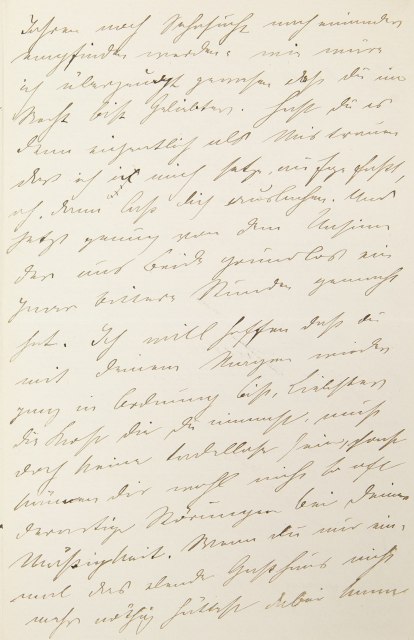 Jahren noch Sehnsucht nach einander
empfinden werden. wie wäre
ich überzeugt gewesen daß du im
Recht bist Geliebter. Hast du es
denn eigentlich als Mistrauen
daß ich mich aufgefaßt,
o, dann laß dich auslachen. Und
jetzt genug von dem Unsinn
der uns beide grundlos ein
paar bittere Stunden gemacht
hat. Ich will hoffen daß du
mit deinem Magen wieder
ganz in Ordnung bist, Liebster
die Kost die du nimmst, muß
doch keine tadellose sein, sonst
können dir wohl nicht so oft
derartige Störungen bei deiner
Mäßigkeit. Wenn du nur ein-
mal das elende Gasthaus nicht
mehr nötig hättest dabei kann